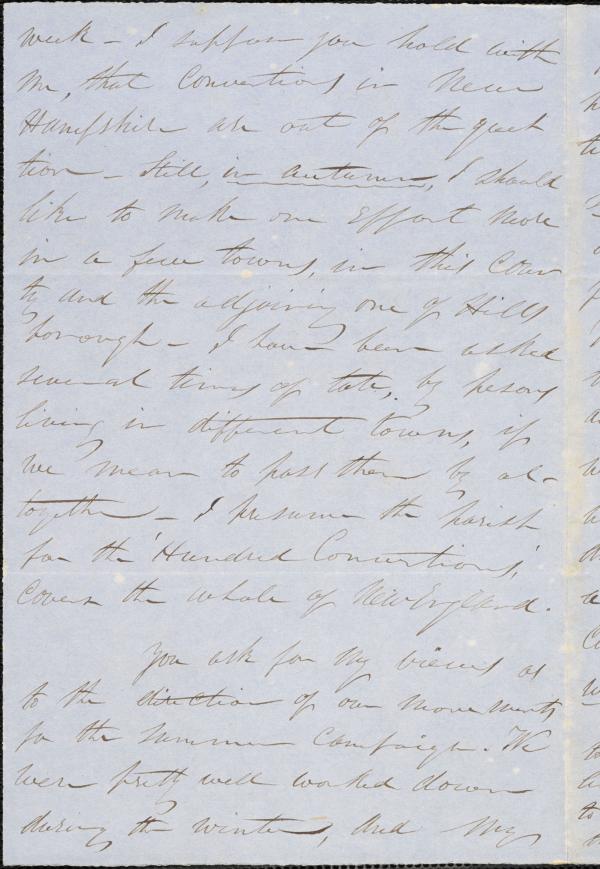 week – I suppose you hold with
me, that Conventions in New
Hampshire are out of the ques
tion – Still, in autumn, I should
like to make one effort more
in a few towns, in this Coun
ty and the adjoining one of Hills
borough – I have been asked
several times of late, by persons
living in different towns, if
we mean to pass them by al-
together – I presume the parish
for the 'Hundred Conventions,'
covers the whole of New England.
You ask for my views as
to the direction of our movements
for the summer campaign. We
were pretty well worked down
during the winter, and my